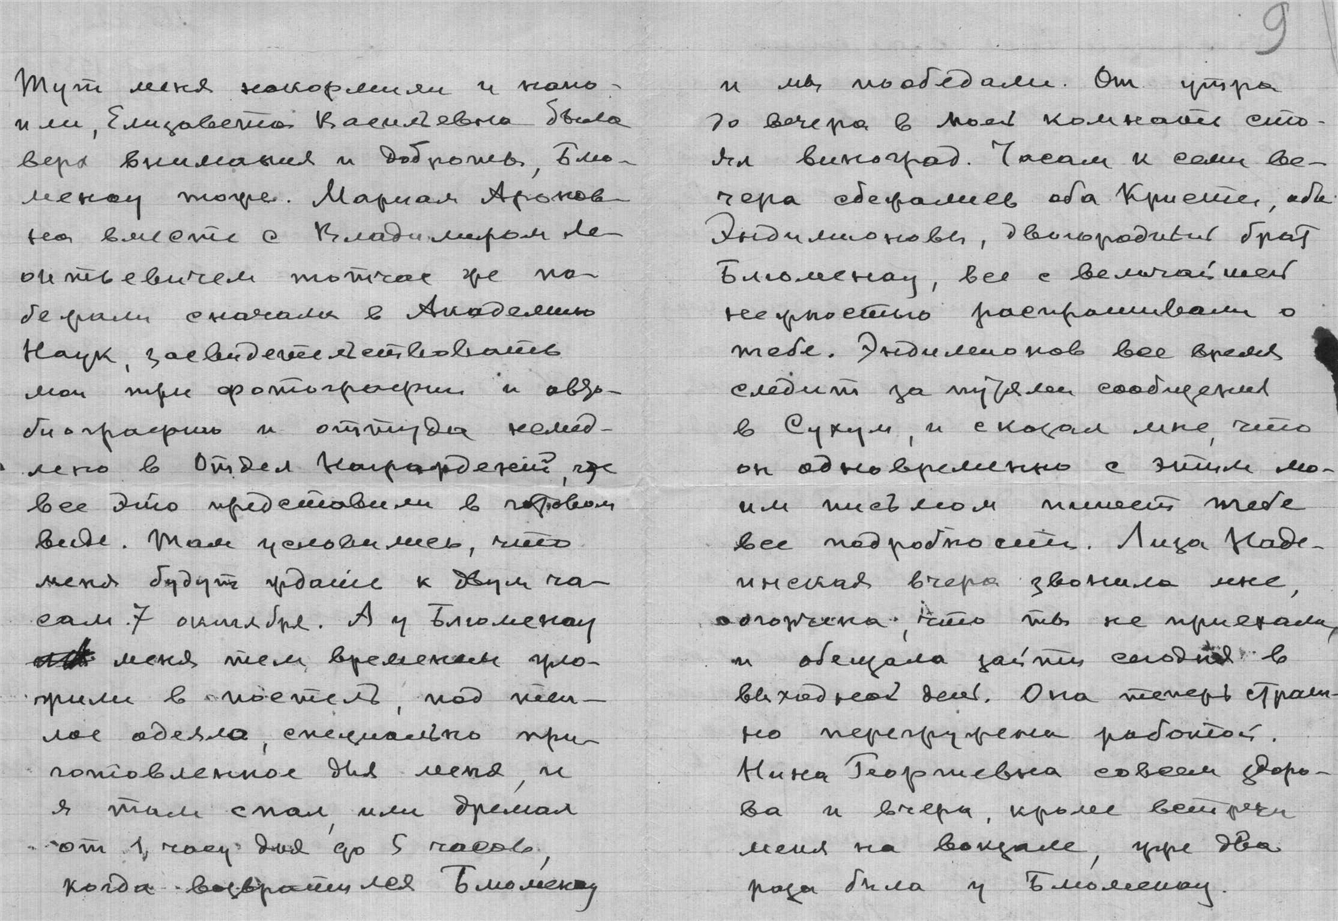 9
Тут меня накормили и напо-
или, Елизавета Васильевна была
верх внимания и доброты, Блю-
менау тоже. Мариам Ароков-
на вместе с Владимиром Ле-
онтьевичем тотчас же по-
бежали сначала в Академию
Наук, засвидетельствовать
мои три фотографии и авто-
биографию и оттуда немед-
лено в Отдел Награждений, где
все это представили в готовом
виде. Там условились, что
меня будут ждать к двум ча-
сам 7 октября. А у Блюменау
меня тем временем уло-
жили в постель, под теп-
лое одеяло, специально при-
готовленное для меня, и
я там спал, или дремал
от 1 часу дня до 5 часов,
когда возвратился Блюменау
и мы пообедали. От утра
до вечера в моей комнате сто-
ял виноград. Часам к семи ве-
чера сбежались оба Кристи, оба
Эндимионовы, двоюродный брат
Блюменау, все с величайшей
нежностью распрашивали о
тебе. Эндимионов все время
следит за путями сообщения
в Сухум, и сказал мне, что
он одновременно с этим мо-
им письмом пишет тебе
все подробности. Лиза Наде-
инская вчера звонила мне,
огорчена, что ты не приехала,
и обещала зайти сегодня в
выходной день. Она теперь страш-
но перегружена работой.
Нина Георгиевна совсем здоро-
ва и вчера, кроме встречи
меня на вокзале, уже два
раза была у Блюменау.